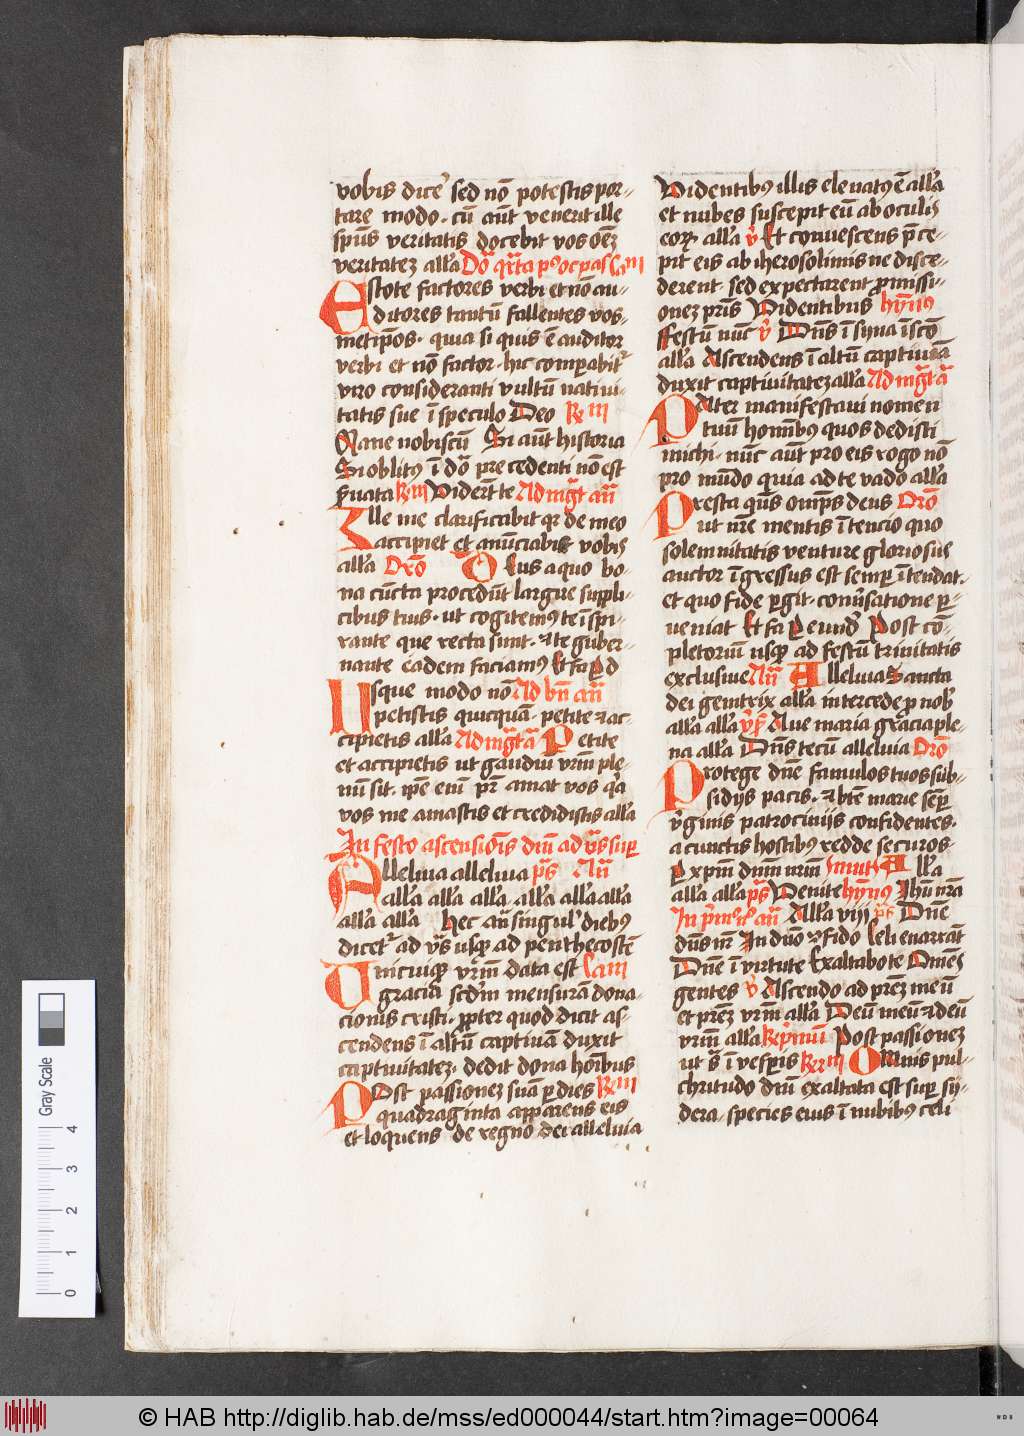 vobis dice᷑ sed nō potestis por-
tare modo · cū aūt venerit ille
sp̄us veritatis docebit vos oēz
veritatez all'a Do᷑ qr̄ta p' oc pas Cam
Estote factores verbi et nō au-
ditores tantū fallentes vos-
metip̄os · quia si quis ē auditor
verbi et nō factor · hic comparabit᷑
viro consideranti vultū nativi-
tatis sue ī speculo Deo R m
Mane nobiscū Si aūt historia
Si oblitus ī do᷑ precedenti nō est
ꝑuata R m Viderūt te Ad mg̅t an̅
Ille me clarificabit qr de meo
accipiet et anūciabit vobis
all'a Orō Deus a quo bo-
na cūcta procedūt largire suppli-
cibus tuis · ut cogitemus te īspi-
rante que recta sunt · et te guber-
nante eadem faciamus Et fa p d
Usque modo nō Ad bn̅ an̅
petistis quicquā · petite et ac-
cipietis all'a Ad mg̅t a̅ Petite
et accipietis ut gaudiū vr̄m ple-
nū sit · ip̄e eni̅ pr̄ amat vos q'a
vos me amastis et credidistis all'a
In festo ascensiōis dn̄i ad vs̄ suꝑ
Alleluia alleluia ps̄ An̅
all'a all'a all'a · all'a all'a all'a
all'a all'a hec an̅ singul' diebus
dicet᷑ ad vs̄ usqꝫ ad penthecostē
Unicuiqꝫ vr̄m data est Cam
gracia scd̄m mensurā dona-
cionis cristi · ꝓpter quod dicit as-
cendens ī altū captivā duxit
captivitatez · dedit dona hoībus
Post passionez suā ꝑ dies R m
quadraginta apparens eis
et loquens de regno dei alleluia
Videntibus illis elevatus ē all'a
et nubes suscepit eū ab oculis
eoꝝ · all'a v̄ Et convescens p̄ce-
pit eis ab iherosolimis ne disce-
derent · sed expectarent promissi-
onez pr̄is Videntibus hȳnus
Festū nūc v̄ Dn̄s ī syna ī sc̄o
all'a Ascendens ī altū captivā
duxit captivitatez all'a Ad mg̅t a̅
Pater manifestavi nomen
tuū hoībus quos dedisti
michi · nūc aūt pro eis rogo nō
pro mūdo quia ad te vado all'a
Presta qs̄ omp̄s deus Orō
ut nr̄e mentis ītencio quo
solemnitatis venture gloriosus
auctor īgressus est semꝑ ītendat ·
et quo fide ꝑgit · conv̄satione ꝑ-
veniat Et fa p eund' Post cō-
pletoriū usqꝫ ad festū trinitatis
exclusive An̅ Alleluia Sancta
dei genitrix all'a intercede ꝑ nob'
all'a all'a v̄s Ave maria gracia ple-
na all'a Dn̄s tecū alleluia Orō
Protege dn̄e famulos tuos sub-
sidiis pacis · et bt̄e marie semꝑ
v̄ginis patrociniis confidentes ·
a cunctis hostibus redde securos ·
P xp̄m dn̄m nr̄m Invit Alla
all'a all'a ps̄ Venite hȳnus Ihū nr̄a
In p̄mo noct an̅ All'a viij ps̄ Dn̄e
dn̄s nr̄ In dn̄o cōfido Celi enarrāt
Dn̄e ī virtute Exaltabo te Omēs
gentes v̄ Ascendo ad prēz meū
et prēz vr̄m all'a Deū meū et deū
vr̄m all'a R p̄mū Post passionez
ut s̄ ī vesꝑis R m Omnis pul-
chritudo dn̄i exaltata est suꝑ sy-
dera · species eius ī nubibus celi
Gray Scale
0 1 2 3 4
© HAB http://diglib.hab.de/mss/ed000044/start.htm?image=00064